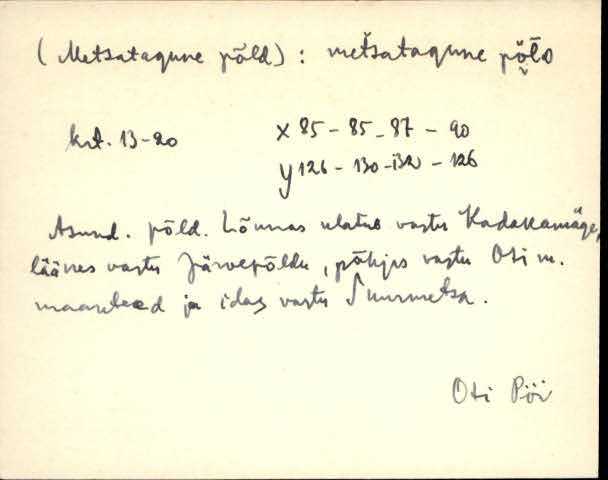 (Metsatagune põld) : metsatagune põlᴅ
krt. 13-20 x 85 - 85 - 87 - 90
y 126 - 130 - 132 - 126
Asund. põld. Lõunas ulatub vastu Kadakamäge,
läänes vastu Järvepõldu, põhjas vastu Oti m.
maanteed ja idas vastu Suurmetsa.
Oti Pöi